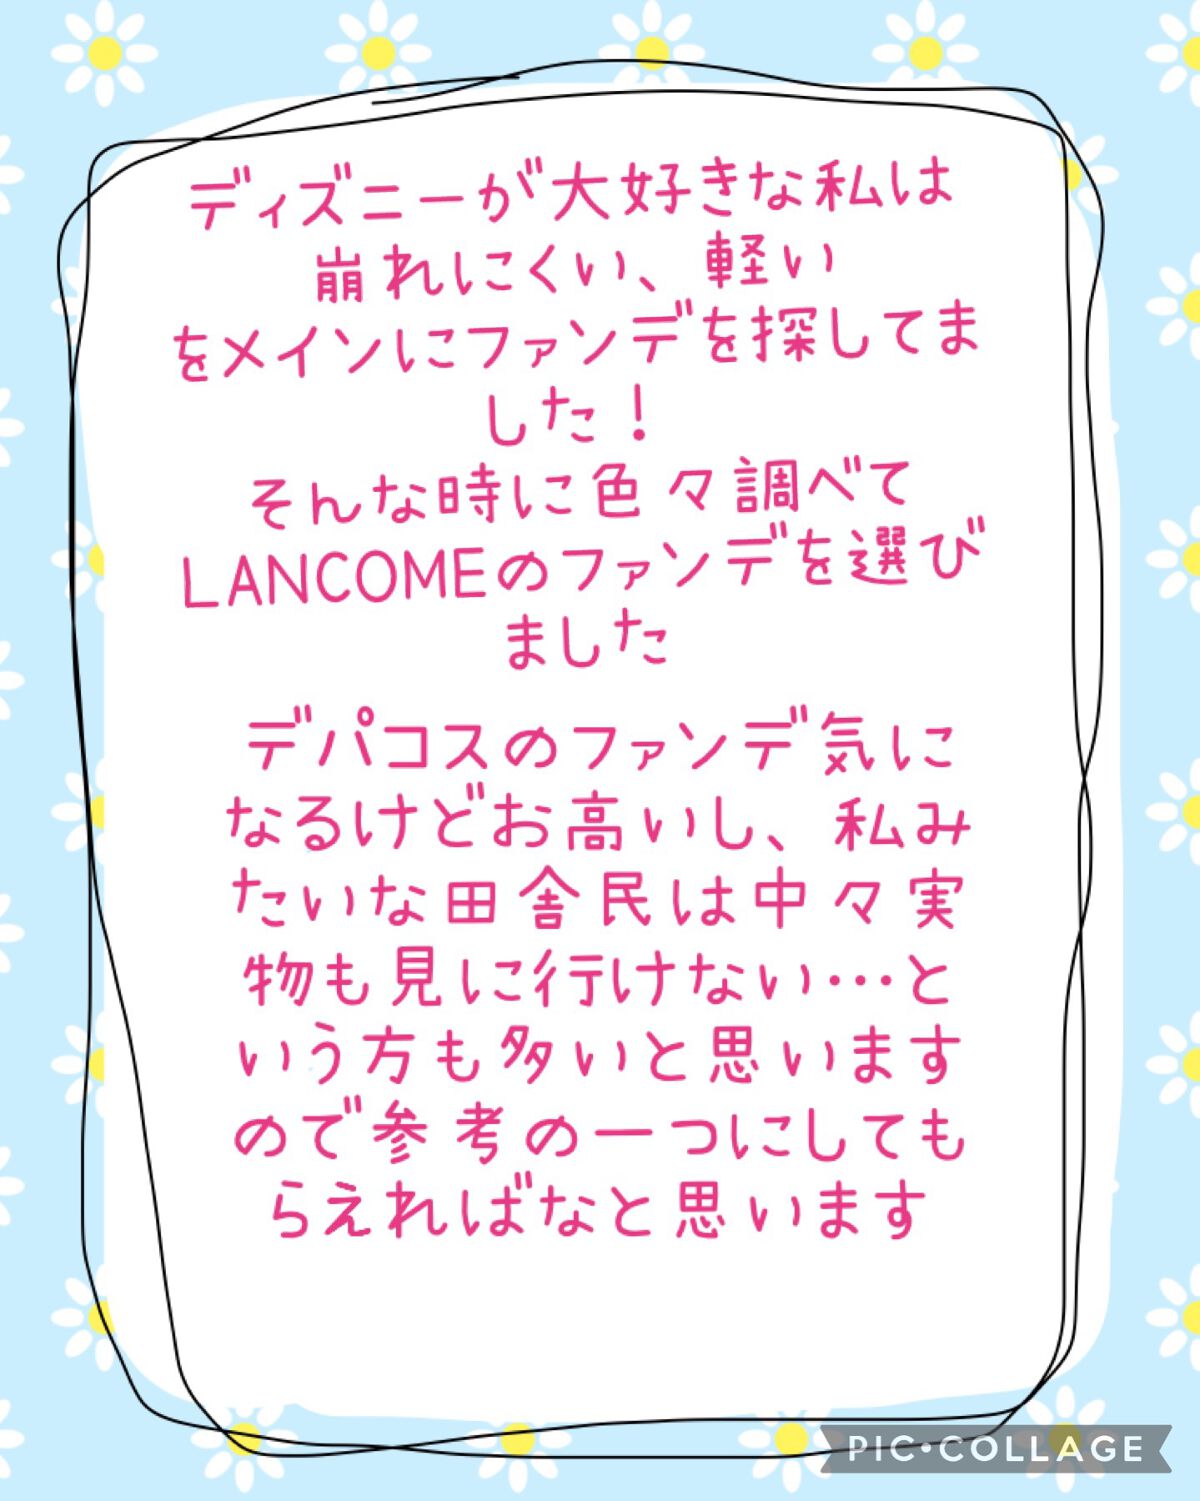 ディズニーが大好きな私は
崩れにくい、軽い
をメインにファンデを探してま
した！
そんな時に色々調べて
LANCOMEのファンデを選び
ました
デパコスのファンデ気に
なるけどお高いし、私み
たいな田舎民は中々実
物も見に行けない…と
いう方も多いと思います
ので参考の一つにしても
らえればなと思います
PIC•COLLAGE